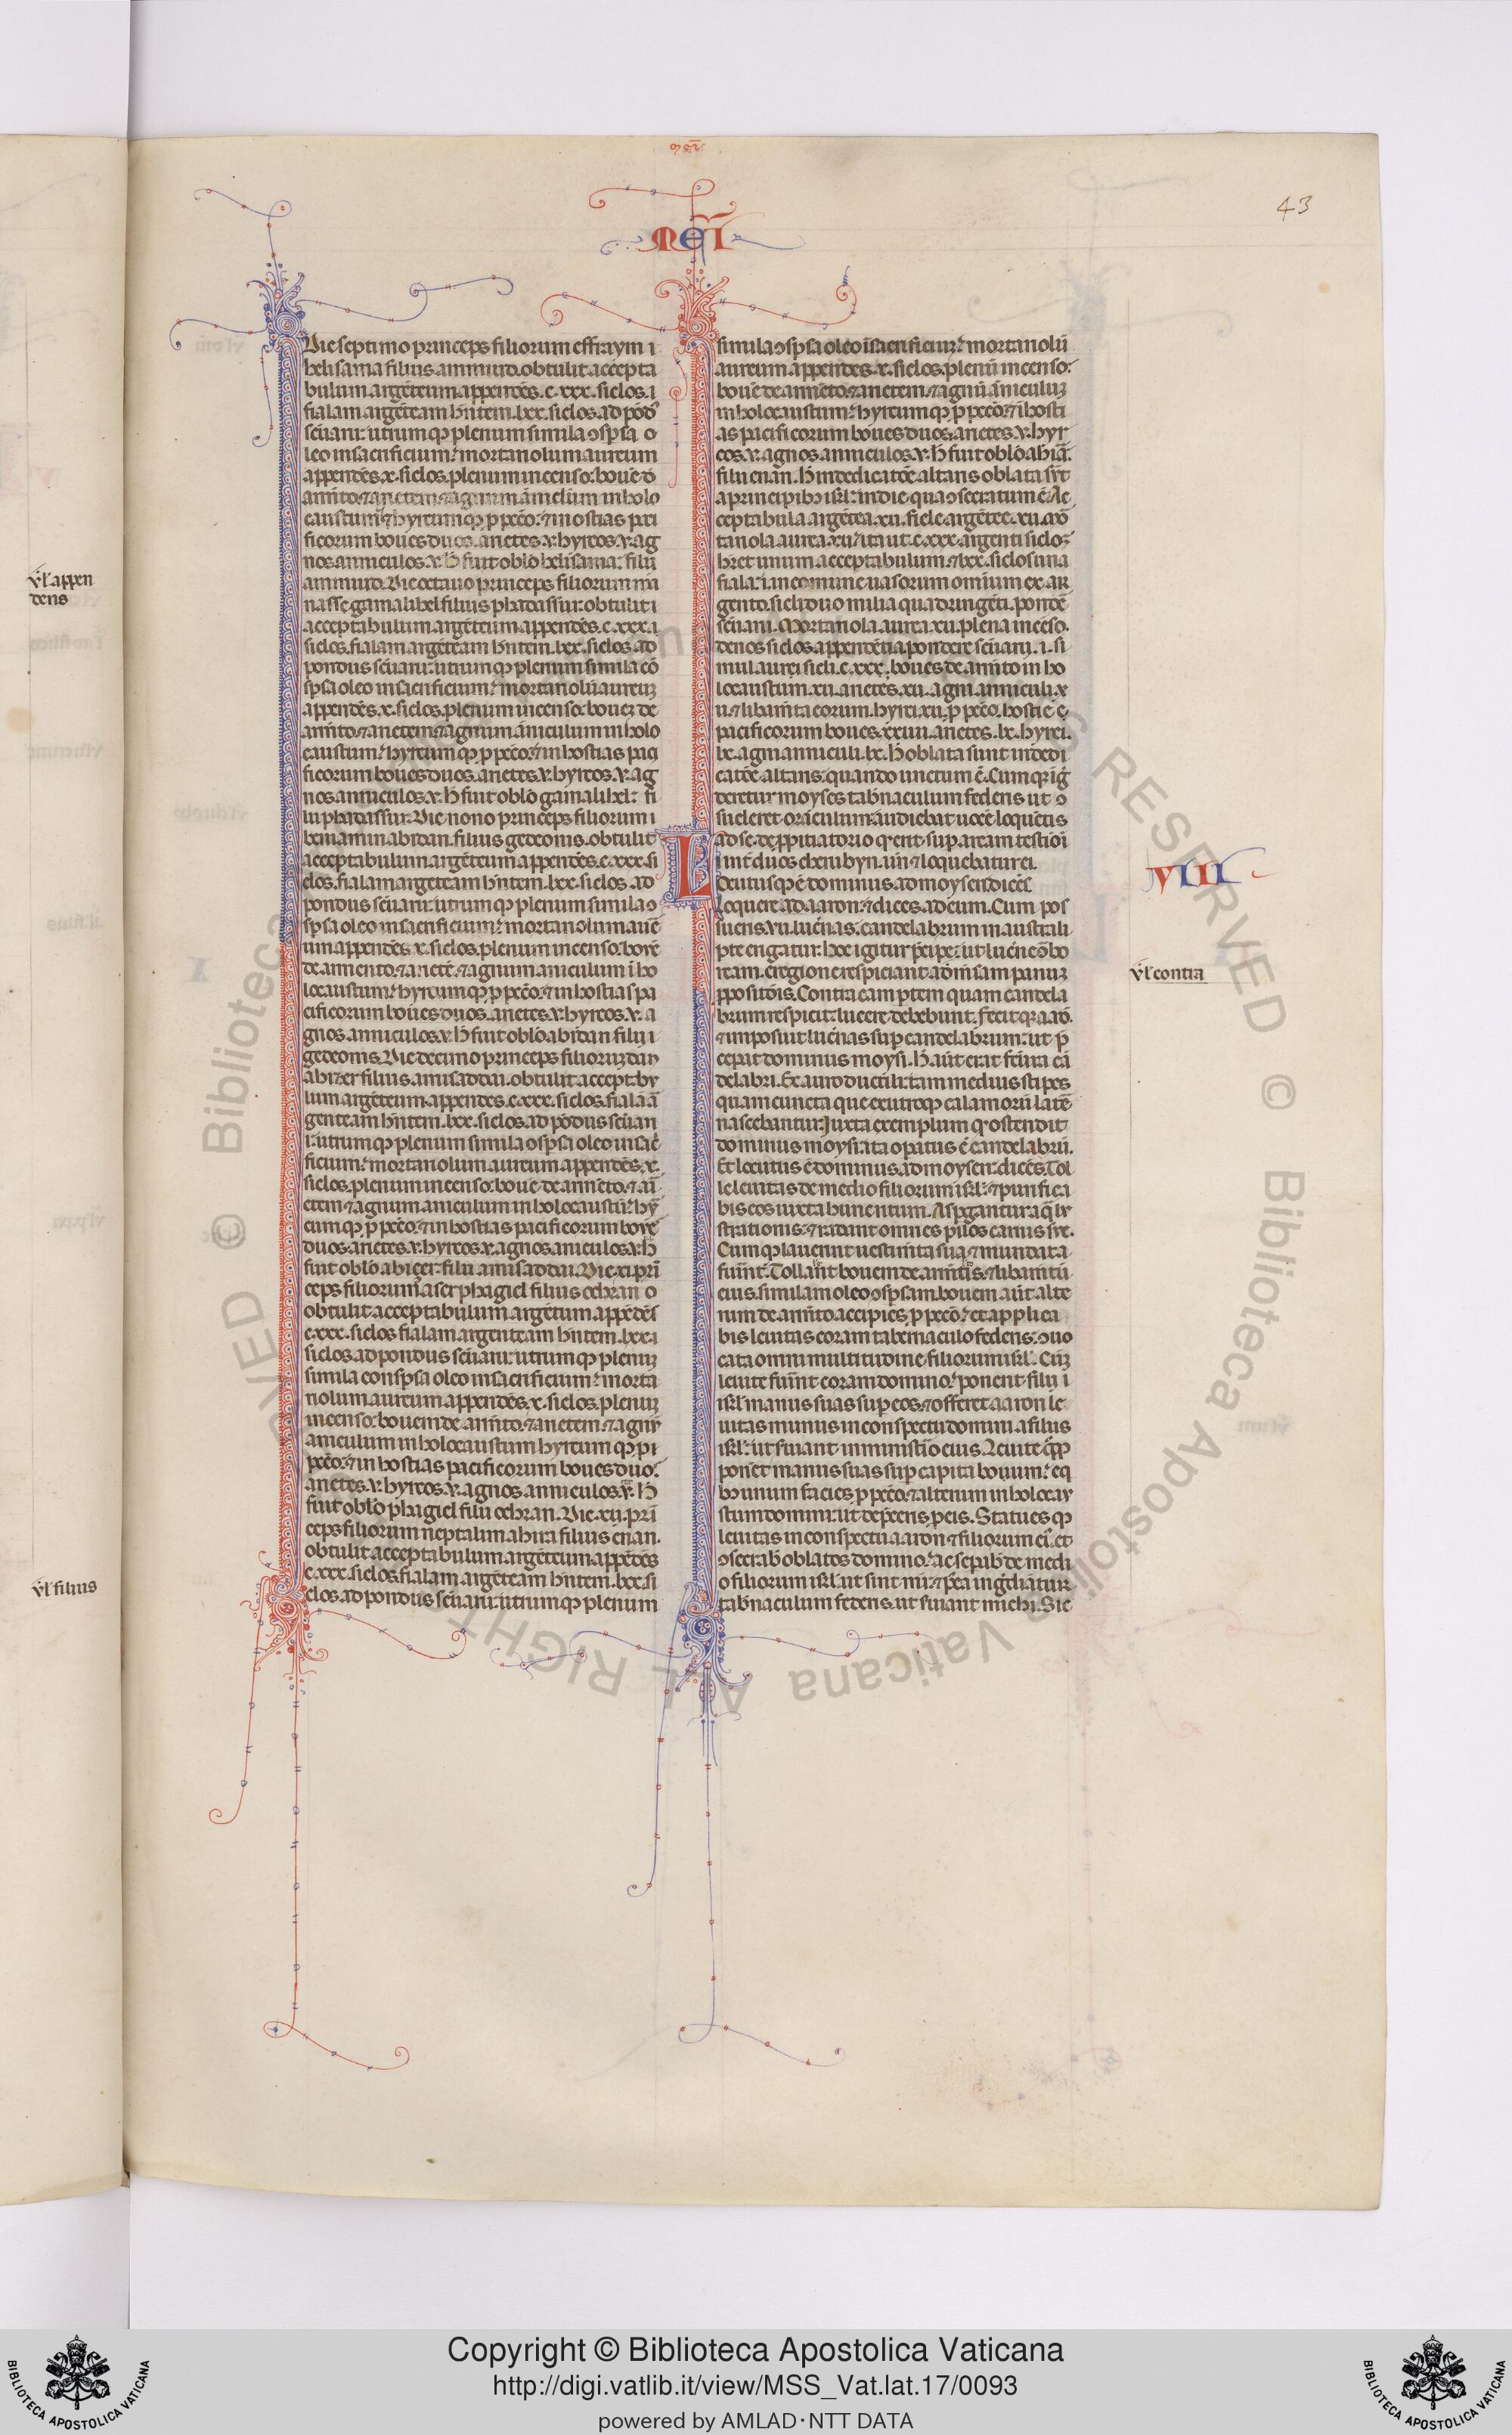 43
MEI
Die septimo princeps filiorum effraym i
helisama filius ammiud. obtulit accepta
bulum argēteum appendēs .c.xxx. siclos. i
fialam argēteam hn̄tem .lxx. siclos. ad pōd᷒
sc̄uarii: utrumqꝫ plenum simila ↄsp̄sa o
leo in sacrificium: mortariolum aureum
appendēs .x. siclos. plenum incenso: bouē d̄
armēto. ⁊ arietem. ⁊ agnum āniclum in holo
caustum: ⁊ hyrcumqꝫ p̱ pcc̄o. ⁊ in ostias paci
ficorum boues duos. arietes .v. hyrcos .v. ag
nos anniculos .v. h̄ fuit oblō helisama: filii
ammiud. Die octauo princeps filiorum ma
nasse gamalihel filius phadassur: obtulit i
acceptabulum argēteum appendēs .c.xxx. i
siclos. fialam argēteam hn̄tem .lxx. siclos. ad
pondus sc̄uarii: utrumqꝫ plenum simila cō
sp̄sa oleo in sacrificium: mortariolū aureuꝫ
appendēs .x. siclos. plenum incenso: bouez de
armēto. ⁊ arietem. ⁊ agnum āniculum in holo
caustum: hyrcumqꝫ p̱ pcc̄o. ⁊ in hostias paci
ficorum boues duos. arietes .v. hyrcos .v. ag
nos anniculos .v. h̄ fuit oblō gamalihel: fi
lii phadassur. Die nono princeps filiorum i
beniamin abidan. filius gedeonis. obtulit
acceptabulum argēteum appendēs .c.xxx. si
clos. fialam argēteam hn̄tem .lxx. siclos. ad
pondus sc̄uarii: utrumqꝫ plenum simila ↄ
sp̄sa oleo in sacrificium: mortariolum aurē
um appendēs .x. siclos. plenum incenso: bouē
de armento. ⁊ arietē. ⁊ agnum aniculum ī ho
locaustum: hyrcumqꝫ p̱ pcc̄o. ⁊ in hostias pa
cificorum boues duos. arietes .v. hyrcos .v. a
gnos anniculos .v. h̄ fuit oblō abidan filii i
gedeonis. Die decimo princeps filioruꝫ dan
abiezer filius. amisaddai. obtulit acceptabu
lum argēteum appendēs .c.xxx. siclos. fialā ar
genteam hn̄tem .lxx. siclos. ad pōdus sc̄uari
i: utrumqꝫ plenum simila ↄsp̄sa oleo in sac̄
ficium: mortariolum aureum appendēs .x.
siclos. plenum incenso: bouē de armēto. ⁊ ari
etem ⁊ agnum aniculum in holocaustū: hyr
cumqꝫ p̱ pcc̄o. ⁊ in hostias pacificorum boue
duos. arietes .v. hyrcos .v. agnos aniculos .v. h̄
fuit oblō abiezer: filii amisaddai. Die .xi. pri
ceps filiorum aser phagiel filius ochran o
obtulit. acceptabulum argētum appēdēs
.c.xxx. siclos fialam argenteam hn̄tem .lxx. i
siclos. ad pondus sc̄uarii: utrumqꝫ plenuꝫ
simila consp̄sa oleo in sacrificium: morta
riolum aureum appendēs .x. siclos. plenuꝫ
incenso: bouem de armēto. ⁊ arietem. ⁊ agnū
aniculum in holocaustum hyrcumqꝫ p̱ i
pcc̄o. ⁊ in hostias pacificorum boues duo.
arietes .v. hyrcos .v. agnos anniculos .v. h̄
fuit oblō phagiel filii ochran. Die .xii. pri
ceps filiorum neptalim ahira filius enan.
obtulit acceptabulum argēteum appēdēs
.c.xxx. siclos fialam argēteam hn̄tem .lxx. si
clos. ad pondus sc̄uarii: utrumqꝫ plenum
simila ↄsp̄sa oleo ī sacrificiuꝫ: mortariolū
aureum appendēs .x. siclos. plenū incenso:
bouē de armēto. ⁊ arietem. ⁊ agnū āniculuꝫ
in holocaustum: hyrcumqꝫ p̱ pcc̄o. ⁊ ī hosti
as pacificorum boues duos. arietes .v. hyr
cos .v. agnos anniculos .v. h̄ fuit oblō ahirā.
filii enan. h̄ in dedicatōe altaris oblata sr̄t
a principibꝫ isrl̄: in die qua ↄsecratum ē. Ac
ceptabula argētea .xii. fiale argētee .xii. mō
tariola aurea .xii: ita ut .c.xxx. argenti sicloꝫ
hr̄et unum acceptabulum. ⁊ lxx. siclos una
fiala: i. in comune uasorum omnium ex ar
gento. sicli duo milia quadringēti. pondē
sc̄uarii. Mortariola. aurea. xii. plena incēso.
denos siclos. appendētia pondere sc̄uarij. .i. si
mul aurei sicli .c.xxx. boues de armēto in ho
locaustum .xii. arietes .xii. agni anniculi. x
ii. ⁊ libam̄ta eorum. hyrci .xii. p̱ pcc̄o. hostie ē
pacificorum boues .xxiiii. arietes .lx. hyrci.
lx. agni anniculi .lx. h̄ oblata sunt in dedi
catōe altaris. quando unctum ē. Cumqꝫ igr̄
deretur moyses tabn̄aculum federis ut ↄ
suleret oraculum: audiebat uocē loquētis
ad se. de p̱pitiatorio qd̄ erat sup̱ arcam testiōi
int̄ duos cherubyn. un̄ ⁊ loquebatur ei.
Locutusqꝫ ē dominus ad moysen dicēs
loquere ad aaron. ⁊ dices ad eum. Cum pos
sueris .vii. lucn̄as. candelabrum in australi
pte erigatur: hoc igitur p̄cipe: ut lucn̄e ctō bo
ream. e regione respiciant ad m̄sam panuꝫ
p̱positōis. Contra eam p̱tem quam candela
brum respicit: lucere debebunt. fecitqꝫ aarō.
⁊ imposuit lucn̄as sup̱ candelabrum: ut p̄
cepat dominus moysi. h̄ aūt erat fctura cā
delabri. Ex auro ductili: tam medius stipes
quam cuncta que ex utroqꝫ calamorū latē
nascebantur. Juxta exemplum qd̄ ostendit
dominus moysi: ita opatus ē candelabrū.
Et locutus ē dominus. ad moysen: dicēs. Tol
le leuitas de medio filiorum isrl̄: ⁊ purifica
bis eos iuxta hunc ritum. Aspgantur aq̄ lu
strationis: ⁊ radant omnes pilos carnis sue.
Cumqꝫ lauerint uestim̄ta sua. ⁊ mundata
fuīnt: Tollant bouem de armētis. ⁊ libam̄tū
eius. similam oleo ↄsp̄sam. bouem aūt alte
rum de arm̄to accipies. p̱ pcc̄o: et applica
bis leuitas coram tabernaculo federis: ↄuo
cata omni multitudine filiorum isrl̄. Cūꝫ
leuite fuīnt coram domino: ponent filii i
isrl̄ manus suas sup̱ eos. ⁊ offeret aaron le
uitas munus in conspectu domini. a filiis
isrl̄: ut seruiant in ministīo eius. Leuite qꝫ
ponēt manus suas sup̱ capita bouum: eq
bꝫ unum facies. p̱ pcc̄o. ⁊ alterum in holocau
stum domini: ut dep̄ceris p̱ eis. Statuesqꝫ
leuitas in conspectu aaron ⁊ filiorum eī. et
ↄsecrabꝫ oblatos domino: ac sepabꝫ de medi
o filiorum isrl̄ ut sint mī: ⁊ p̄ea ingrediātur
tabn̄aculum federis. ut seruiant michi. Sic
VIII
vl̄ contra
vl̄ appen
dens
vl̄ filius
© Biblioteca Apostolica Vaticana ALL RIGHTS RESERVED
BIBLIOTECA APOSTOLICA VATICANA
Copyright © Biblioteca Apostolica Vaticana
http://digi.vatlib.it/view/MSS_Vat.lat.17/0093
powered by AMLAD·NTT DATA
BIBLIOTECA APOSTOLICA VATICANA